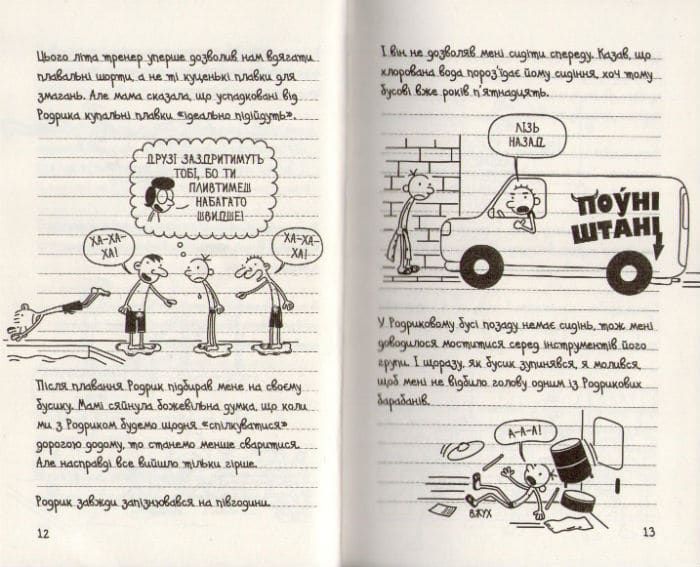 Цього літа тренер уперше дозволив нам вдягати
плавальні шорти, а не ті куценькі плавки для
змагань. Але мама сказала, що успадковані від
Родрика купальні плавки «ідеально підійдуть».
ДРУЗІ ЗАЗДРИТИМУТЬ
ТОБІ, БО ТИ
ПЛИВТИМЕШ
НАБАГАТО
ШВИДШЕ!
ХА-ХА-
ХА!
ХА-ХА-
ХА!
Після плавання Родрик підбирав мене на своєму
бусику. Мамі сяйнула божевільна думка, що коли
ми з Родриком будемо щодня «спілкуватися»
дорогою додому, то станемо менше сваритися.
Але насправді все вийшло тільки гірше.
Родрик завжди запізнювався на півгодини.
12
І він не дозволяв мені сидіти спереду. Казав, що
хлорована вода пороз'їдає йому сидіння, хоч тому
бусові вже років п'ятнадцять.
ЛІЗЬ
НАЗАД
ПОЎНІ
ШТАНІ
У Родриковому бусі позаду немає сидінь, тож мені
доводилося моститися серед інструментів його
групи. І щоразу, як бусик зупинявся, я молився,
щоб мені не відбило голову одним із Родрикових
барабанів.
А-А-А!
ВЖУХ
13